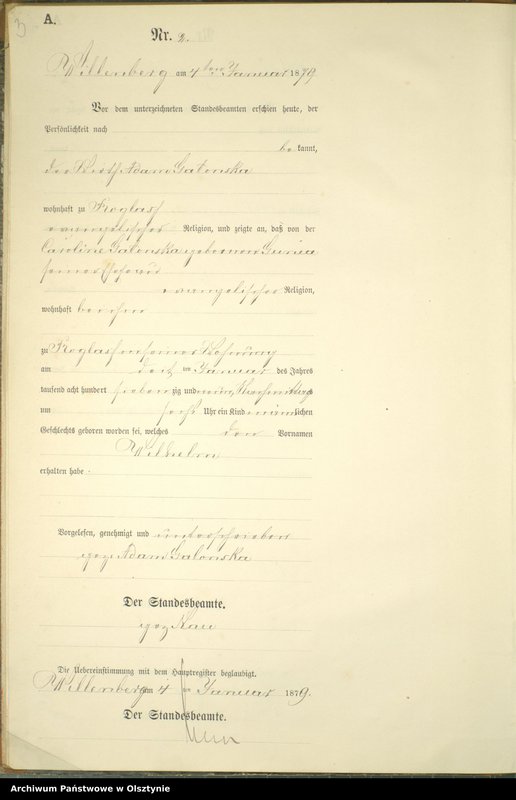 3
A.
Nr. 2.
Willenberg am 4ten Januar 1879
Vor dem unterzeichneten Standesbeamten erschien heute, der
Persönlichkeit nach
bekannt,
der Wirth Adam Galonska
wohnhaft zu Roglass
evangelischer Religion, und zeigte an, daß von der
Caroline Galonska geborenen
seiner Ehefrau
evangelischer Religion,
wohnhaft bei ihm
zu Roglass in seiner Wohnung
am drei ten Januar des Jahres
tausend acht hundert sieben zig und neun, Nachmittags
um sechs Uhr ein Kind männlichen
Geschlechts geboren worden sei, welches den Vornamen
Wilhelm
erhalten habe.
Vorgelesen, genehmigt und unterschrieben
gez. Adam Galonska
Der Standesbeamte.
gez.
Die Uebereinstimmung mit dem Hauptregister beglaubigt.
Willenberg am 4 ten Januar 1879.
Der Standesbeamte.
Archiwum Państwowe w Olsztynie